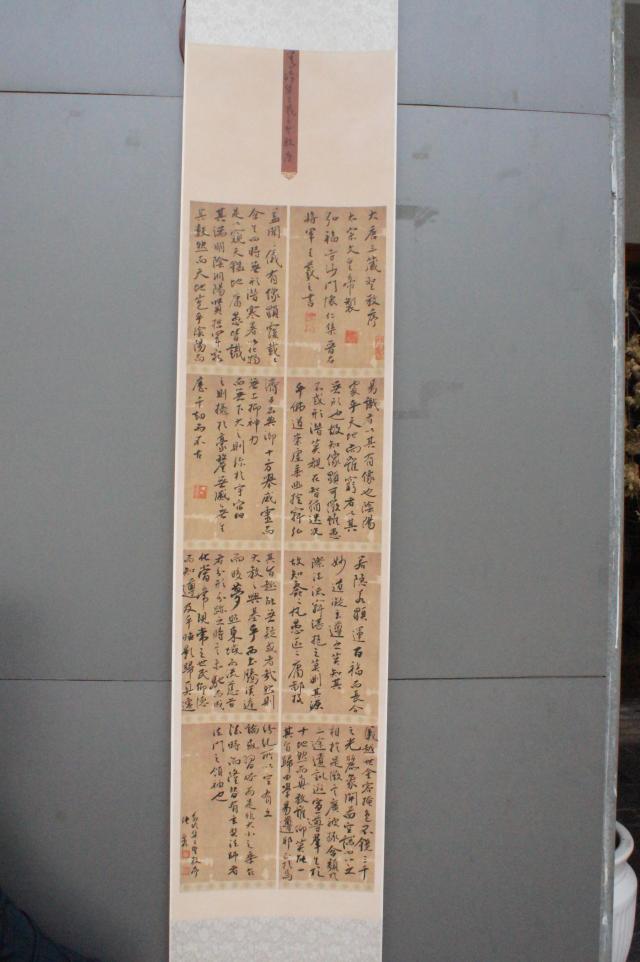 大唐三藏聖教序
太宗文皇帝製
弘福寺沙門懷仁集晉右
將軍王羲之書
蓋聞二儀有像顯覆載以
含生四時無形潛寒暑以化物
是以窺天鑑地庸愚皆識
其端明陰洞陽賢哲罕窮
其數然而天地苞乎陰陽而
易識者以其有像也陰陽
處乎天地而難窮者以其
無形也故知像顯可徵雖愚
不惑形潛莫覩在智猶迷況
乎佛道崇虛乘幽控寂弘
濟万品典御十方舉威靈而
無上抑神力
而無下大之則弥於宇宙細
之則攝於豪釐無滅無生
歷千劫而不古
若隱若顯運百福而長今
妙道凝玄遵之莫知其
際法流湛寂挹之莫測其源
故知蠢蠢凡愚區區庸鄙投
其旨趣能無疑惑者哉然則
大教之興基乎西土騰漢庭
而皎夢照東域而流慈昔
者分形分跡之時言未馳而成
化當常現常之世民仰德
而知遵及乎晦影歸真遷
儀越世金容掩色不鏡三千
之光麗象開圖空端四八之
相於是微言廣被拯含類於
三途遺訓遐宣導群生於
十地然而真教難仰莫能一
其旨歸曲學易遵耶正於焉
紛糾所以空有之
論或習俗而是非大小之乘乍
沿時而隆替有玄奘法師者
法門之領袖也